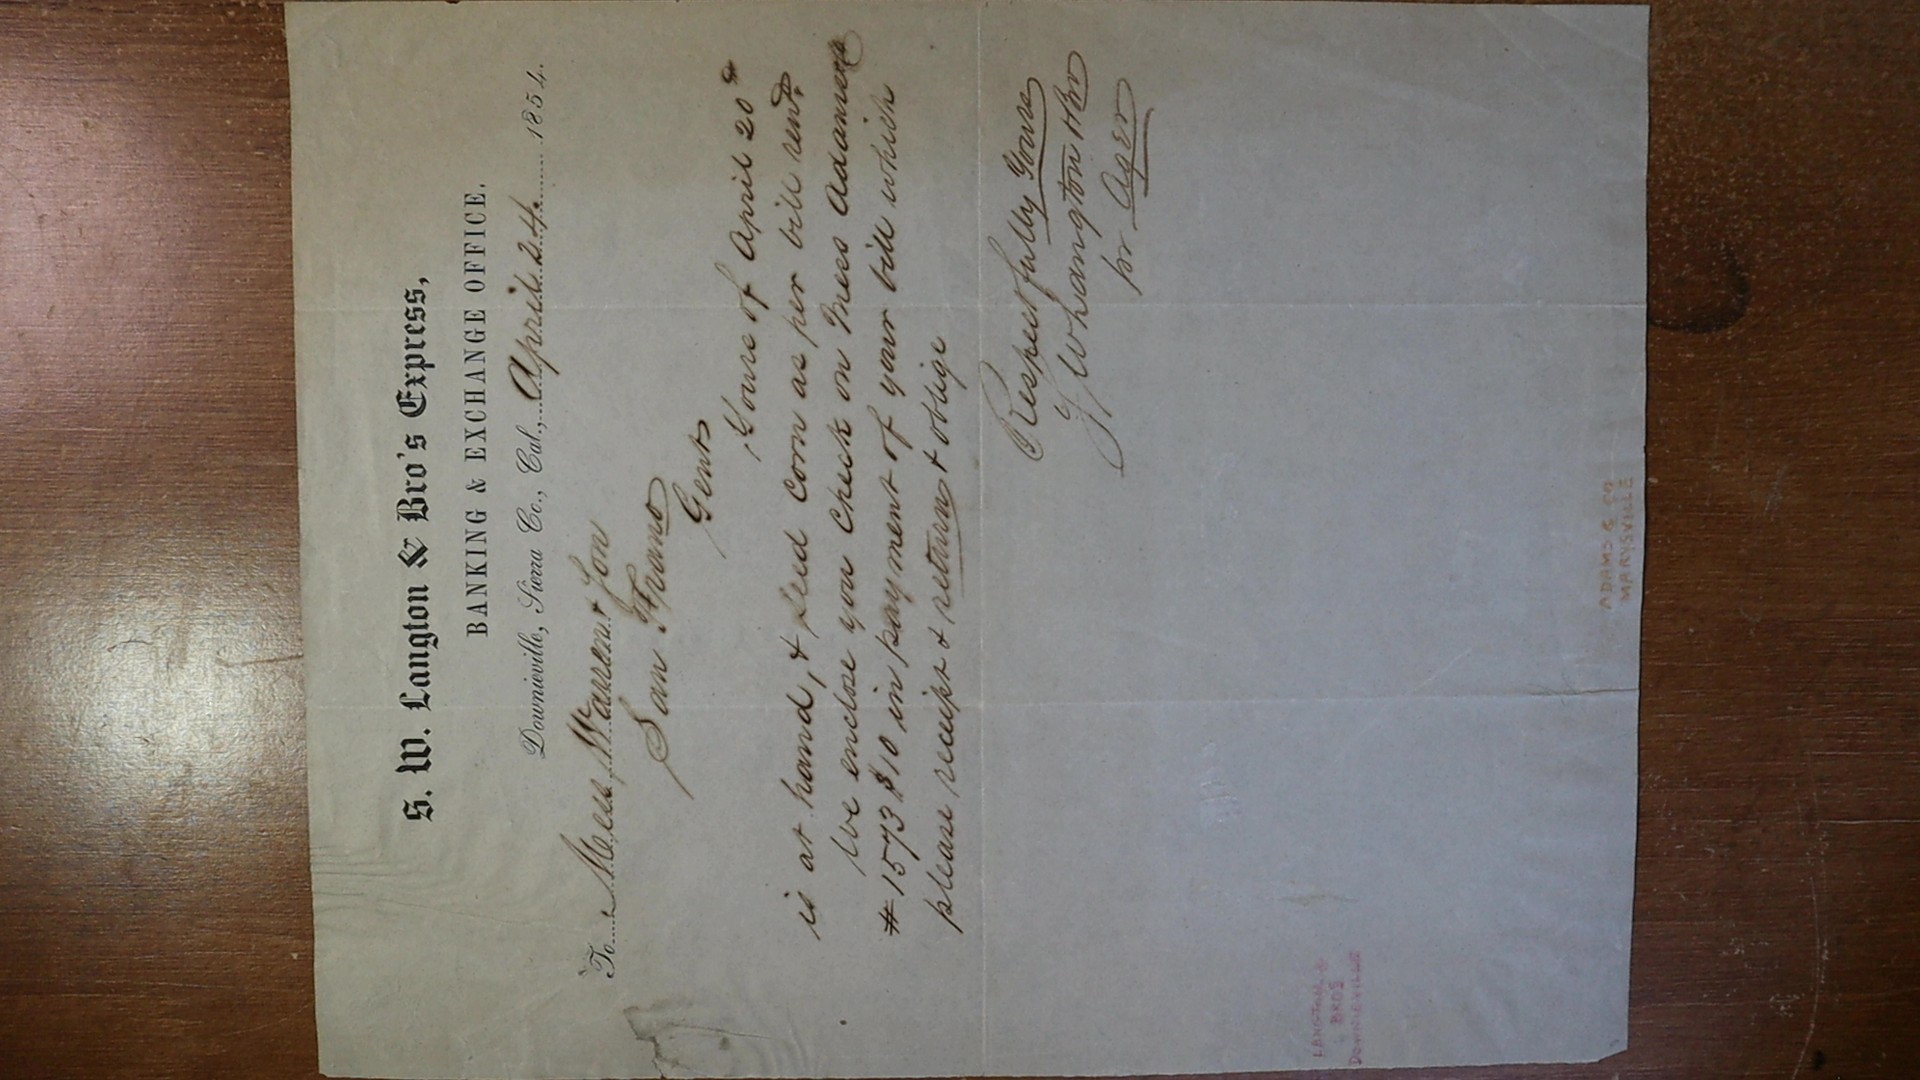 S. W. Langton & Bro's Express,
BANKING & EXCHANGE OFFICE.
Downieville, Sierra Co., Cal., April 24. 1854.
To Mess Warren & Son
San Frano
Gents
Yours of April 20th
is at hand, & seed corn as per bill rend.
We enclose you check on Mess Adams
# 1573 $10 in payment of your bill which
please receipt & return & oblige
Respectfully Yours
Langton & Bro
pr Ager
LANGTON &
BROS
DOWNIEVILLE
ADAMS & CO
MARYSVILLE